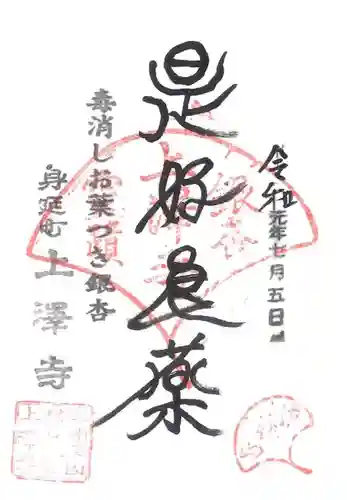 令和元年七月五日
是好良薬
毒消しお葉つき銀杏
身延町 上澤寺